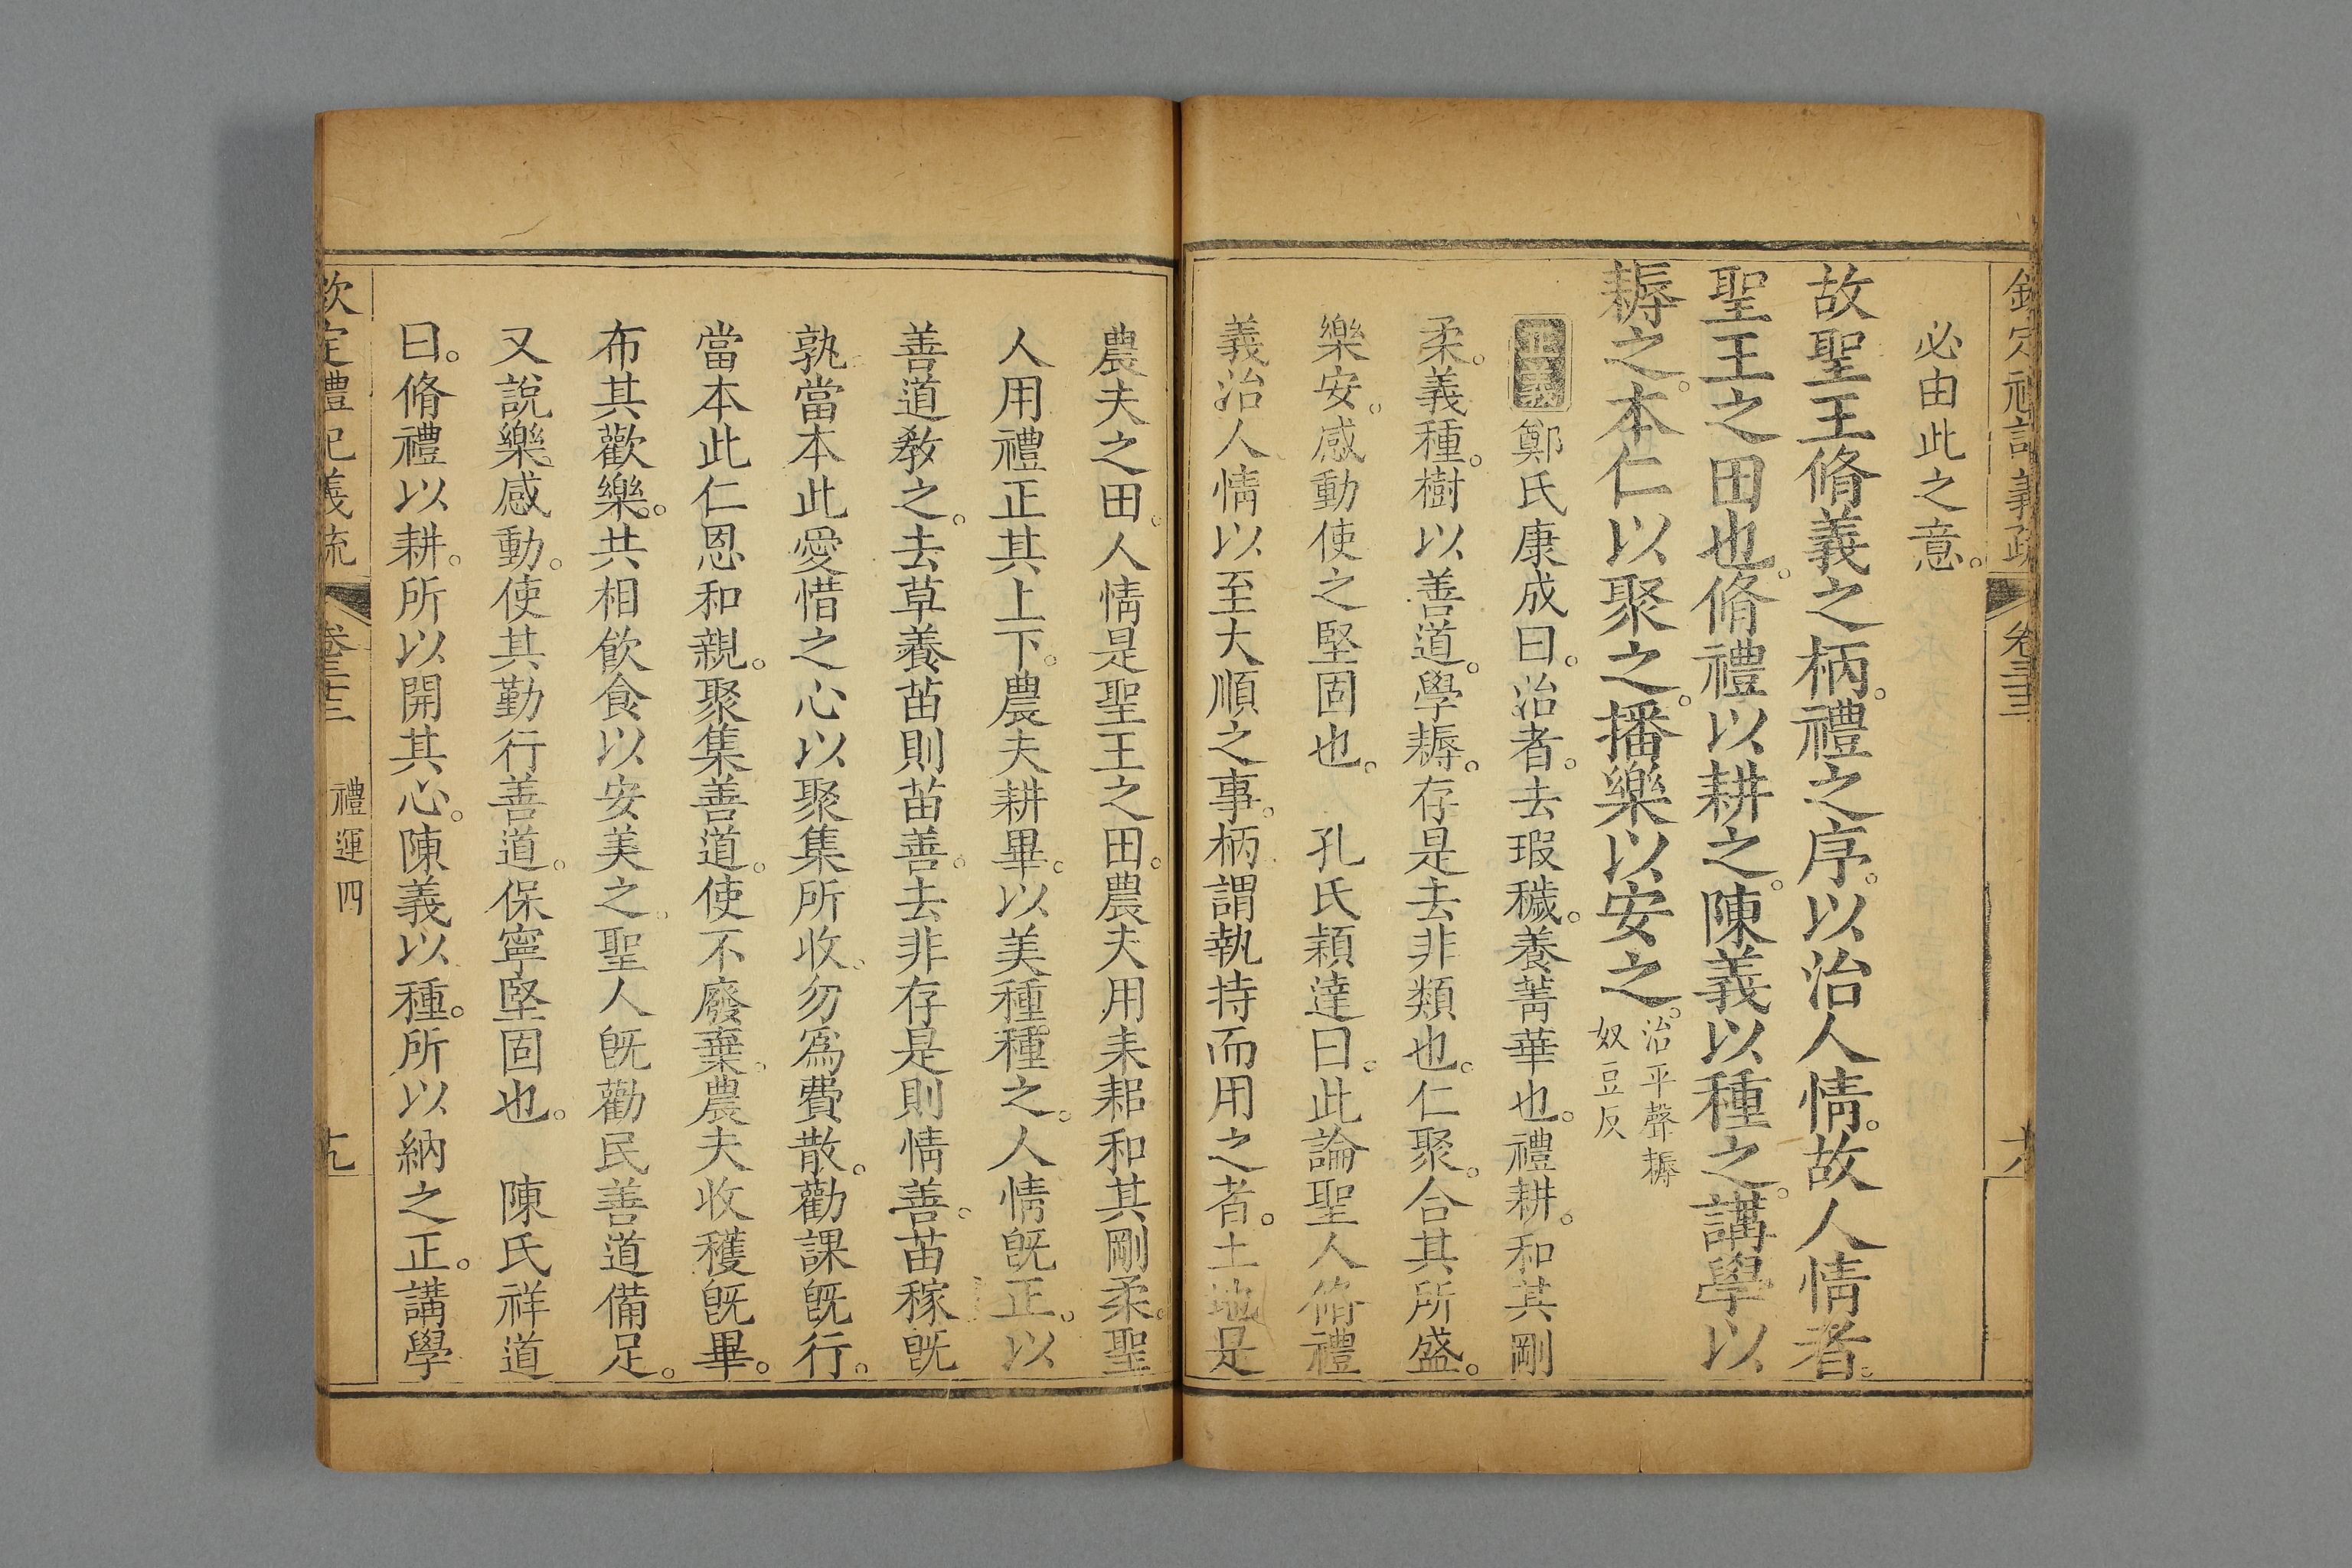 必由此之意。
故聖王脩義之柄。禮之序。以治人情。故人情者。
聖王之田也。脩禮以耕之。陳義以種之。講學以
耨之。本仁以聚之。播樂以安之。治平聲耨
奴豆反
正義 鄭氏康成曰。治者。去瑕穢。養菁華也。禮耕。和其剛
柔。義種。樹以善道。學耨。存是去非類也。仁聚。合其所盛。
樂安。感動使之堅固也。 孔氏穎達曰。此論聖人脩禮
義治人情以至大順之事。柄謂執持而用之者。土地是
農夫之田。人情是聖王之田。農夫用耒耜和其剛柔。聖
人用禮正其上下。農夫耕畢。以美種種之。人情旣正。以
善道敎之。去草養苗則苗善。去非存是則情善。苗稼旣
孰。當本此愛惜之心以聚集所收。勿爲費散。勸課旣行。
當本此仁恩和親。聚集善道。使不廢棄。農夫收穫旣畢。
布其歡樂。共相飮食以安美之。聖人旣勸民善道備足。
又說樂感動。使其勤行善道。保寧堅固也。 陳氏祥道
曰。脩禮以耕。所以開其心。陳義以種。所以納之正。講學
欽定禮記義疏 卷三十三 禮運四